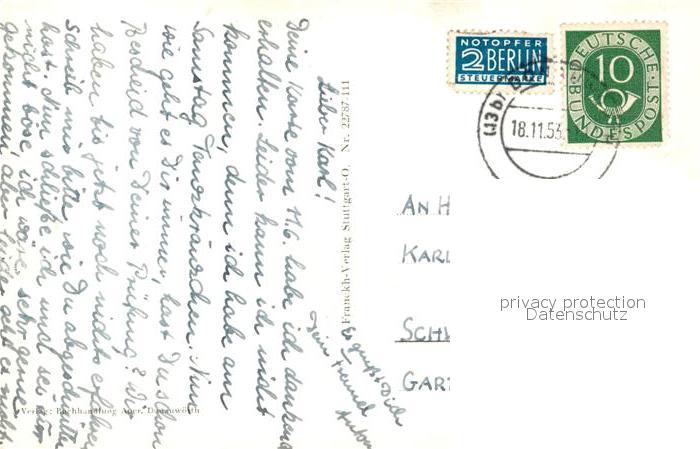 Lieber Karl!
Deine Karte vom 11.6. habe ich dankend
erhalten. Leider kann ich nicht
kommen, denn ich habe am
Samstag Tanzkränzchen. Nun
wie geht es Dir immer, hast Du schon
Bescheid von Deiner Prüfung? Wir
haben bis jetzt noch nichts erfahren
schreib mir bitte wie Du abgeschnitten
hast. Nun schließe ich und sei mir
nicht böse, ich wäre sehr gerne
gekommen, aber leider geht es nicht.
Es grüßt Dich
Dein Freund
Anton
Franckh-Verlag Stuttgart-O. Nr. 22787-111
Verlag: Buchhandlung Auer, Donauwörth
NOTOPFER
2 BERLIN
STEUERMARKE
DEUTSCHE
10
BUNDESPOST
(13b)
18.11.53
AN H
KARL
SCHW
GART
privacy protection
Datenschutz